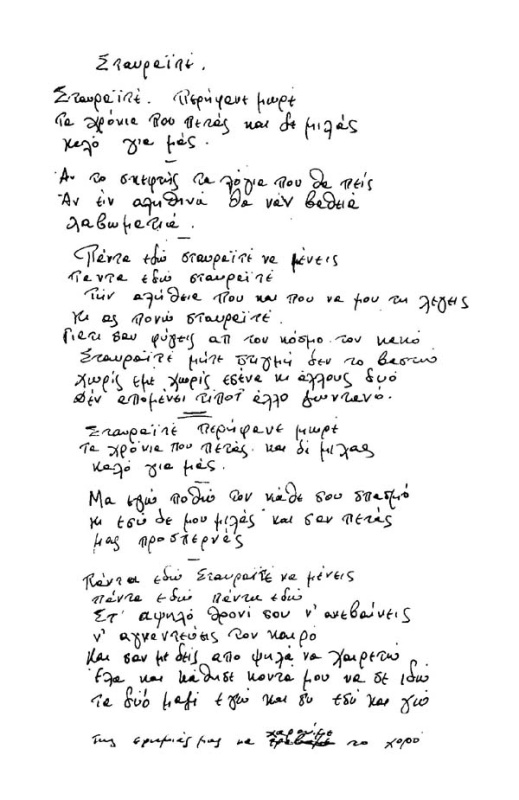 Σταυραϊτέ.
Σταυραϊτέ. Περήφανε μωρέ
Τα χρόνια που πετάς και δε μιλάς
καλό για μάς.
Αν το σκεφτής τα λόγια που θα πείς
Αν είν αληθινά θα ναν βαθειά
λαβωματιά.
Πάντα εδώ σταυραϊτέ να μένεις
Παντα εδώ σταυραϊτέ
Την αλήθεια που και που να μου τη λέγεις
κι ας πονώ σταυραϊτέ.
Γιατι σαν φύγεις απ τον κόσμο τον κακό
Σταυραϊτέ μήτε στιγμή δεν το βαστώ
Χωρίς εμέ χωρίς εσένα κι άλλους δυό
Δέν απομένει τίποτ άλλο ζωντανό.
Σταυραϊτέ περήφανε μωρέ
Τα χρόνια που πετάς. και δε μιλας
καλό για μάς.
Μα εγώ ποθώ τον κάθε σου σπασμό
κι εσύ δε μου μιλάς και σαν πετάς
μας προσπερνάς
Πάντα εδώ Σταυραϊτέ να μένεις
πάντα εδώ πάντα εδώ
Στ' αψηλό θρονί σου ν' ανεβαίνεις
ν' αγναντεύεις τον καιρό
Και σαν με δείς απο ψηλά να χαιρετώ
Έλα και κάθησε κοντα μου να σε ιδώ
τα δυό μαζί εγώ και συ εσύ και γώ
της ερημιάς μας να χορό